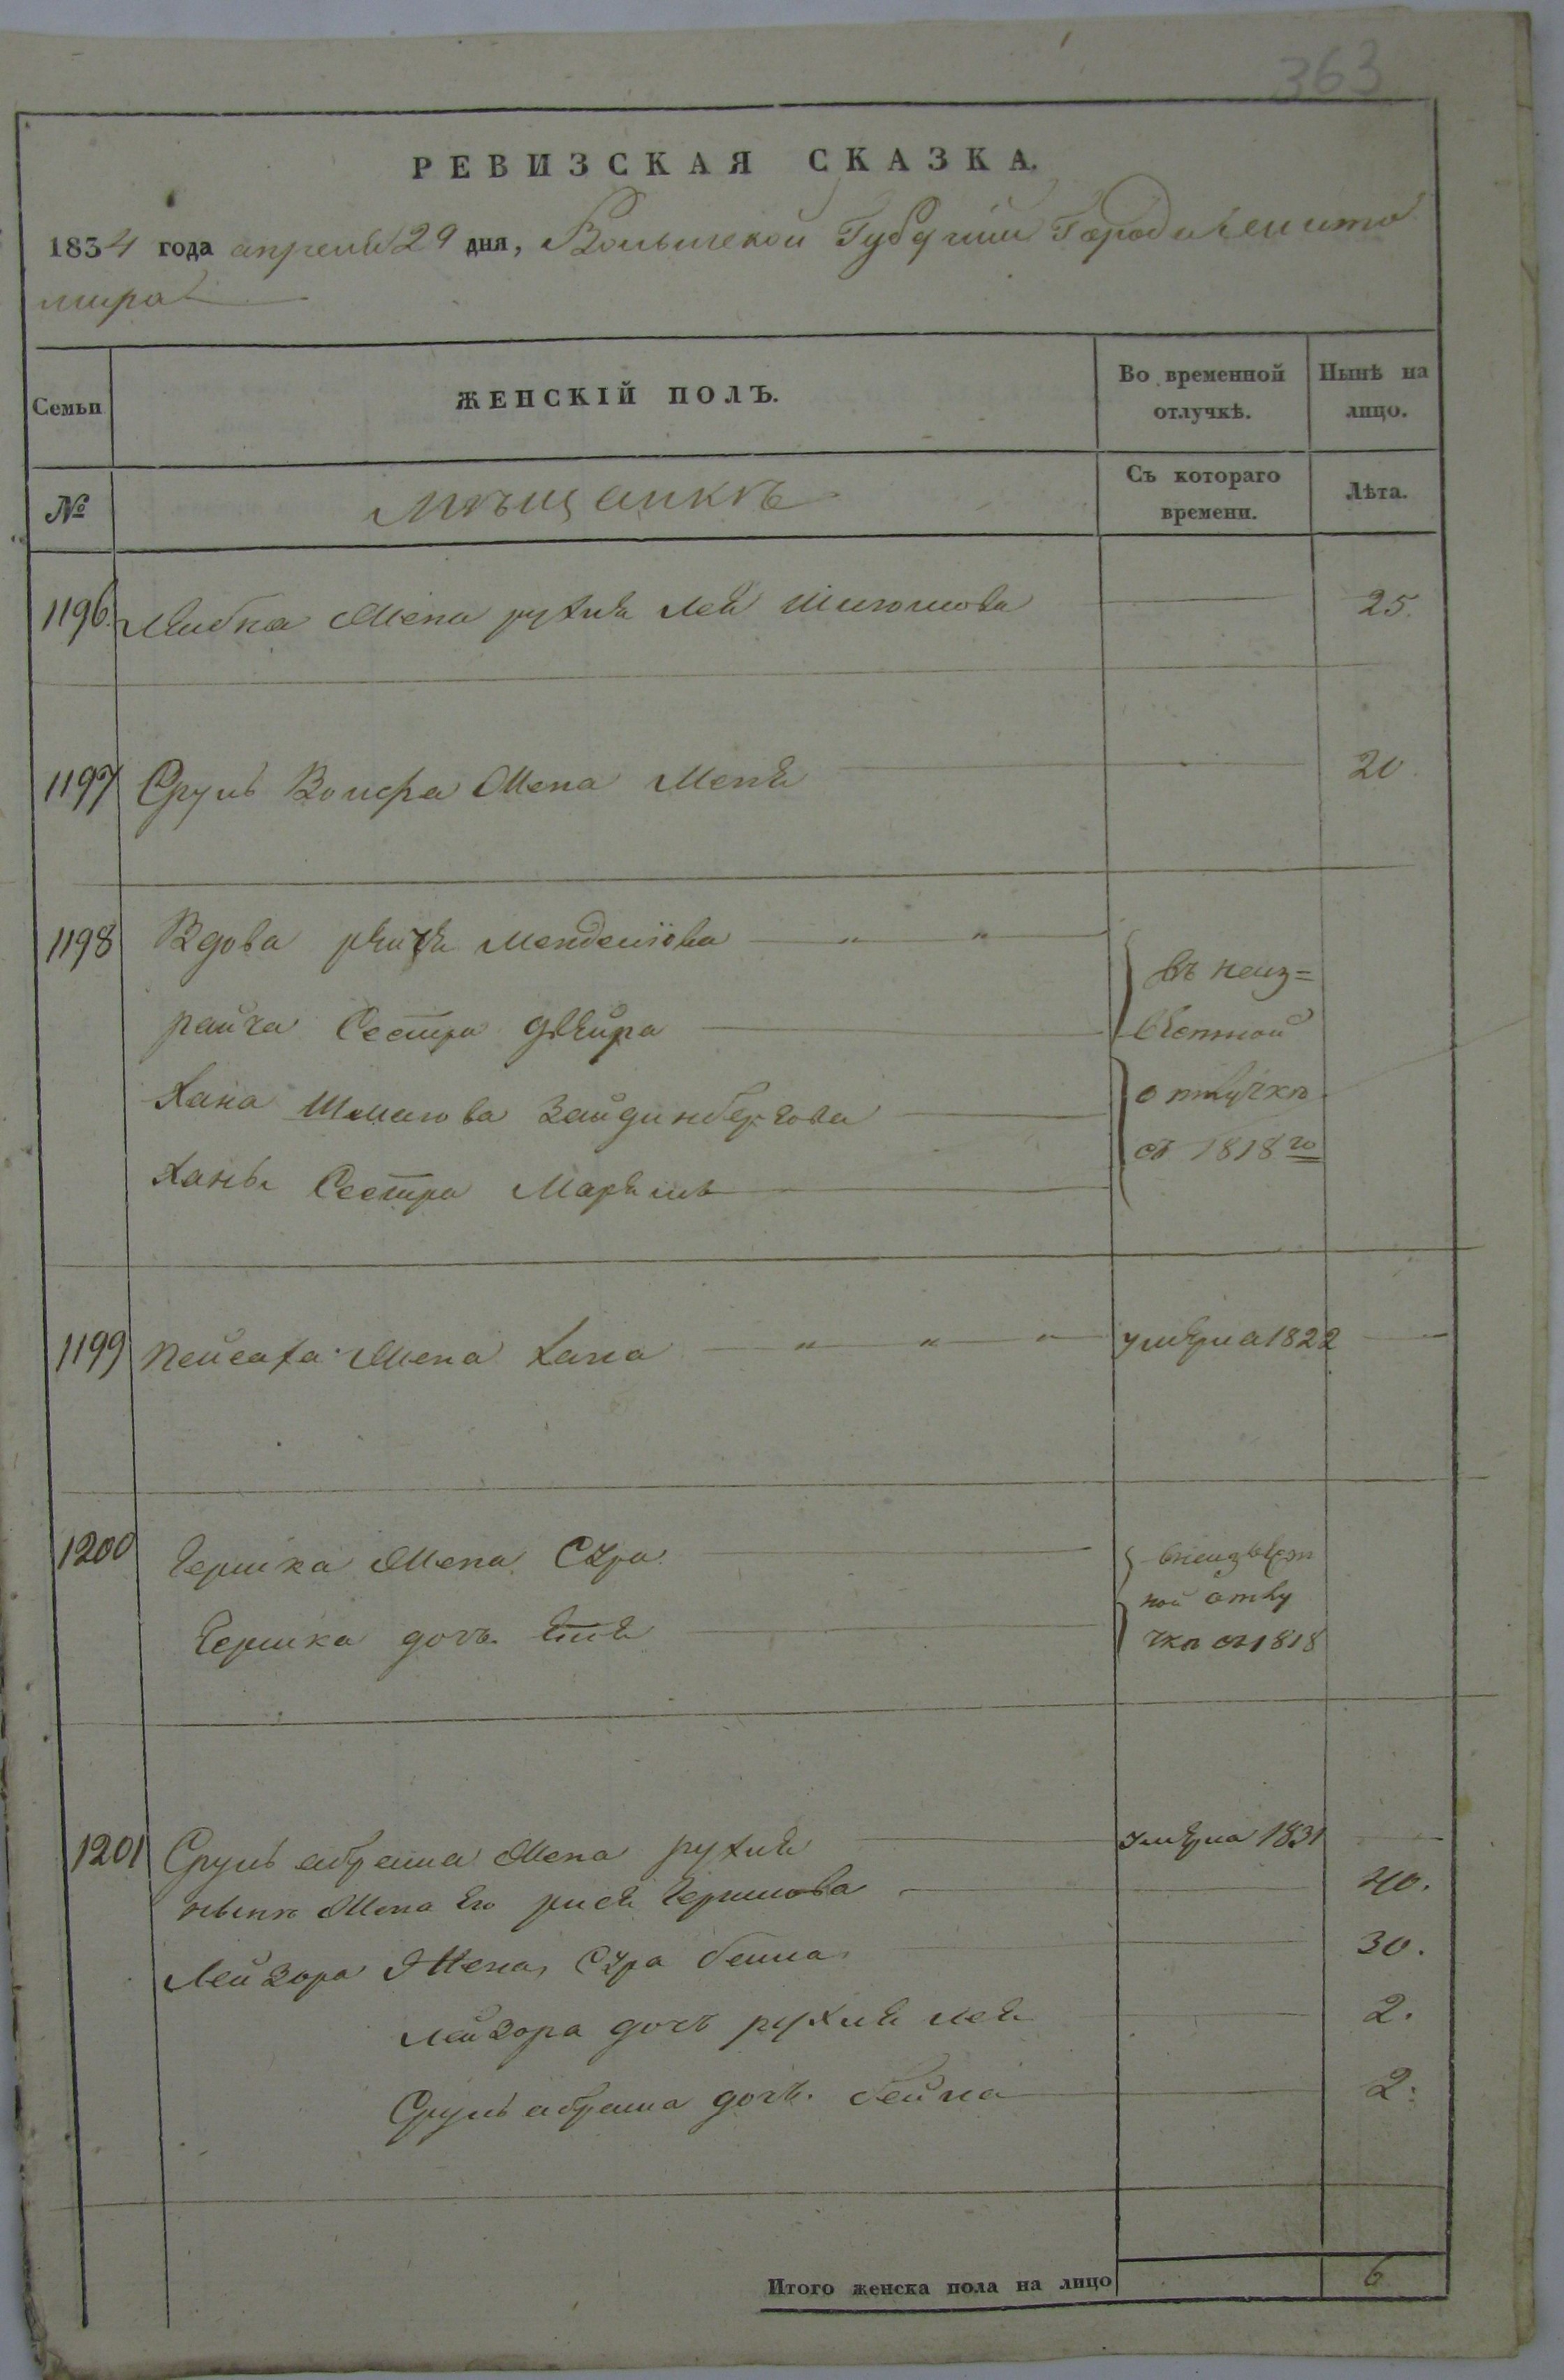 363
РЕВИЗСКАЯ СКАЗКА.
1834 года апреля 29 дня, Волынской Губерніи Города Жито
мира
Семьи
ЖЕНСКІЙ ПОЛЪ.
Во временной отлучкѣ.
Нынѣ на лицо.
№
мѣщанкѣ
Съ котораго времени.
Лѣта.
1196. Лейбка Жена рухля Лея 25.
1197 Сруль Волфа Жена Меня 20.
1198 Вдова Менделіова " "
райча Сестра двейра
Хана Шмилова Зайдинбергова
Ханы Сестра Марьямъ
въ неиз=
вестной
отлучкѣ
съ 1818го
1199 Пейсаха Жена Хана " " " умерла 1822
1200 Гершка Жена Сура
Гершка дочь Етя
внеизвест
ной отлу
чкѣ съ 1818
1201 Сруль абрама Жена рухля умерла 1831
нынѣ Жена Его рися Гершкова 40.
Лейзора Жена Сура бейла 30.
Лейзора дочь рухля лея 2.
Сруль абрама дочь бейла 2.
Итого женска пола на лицо 6